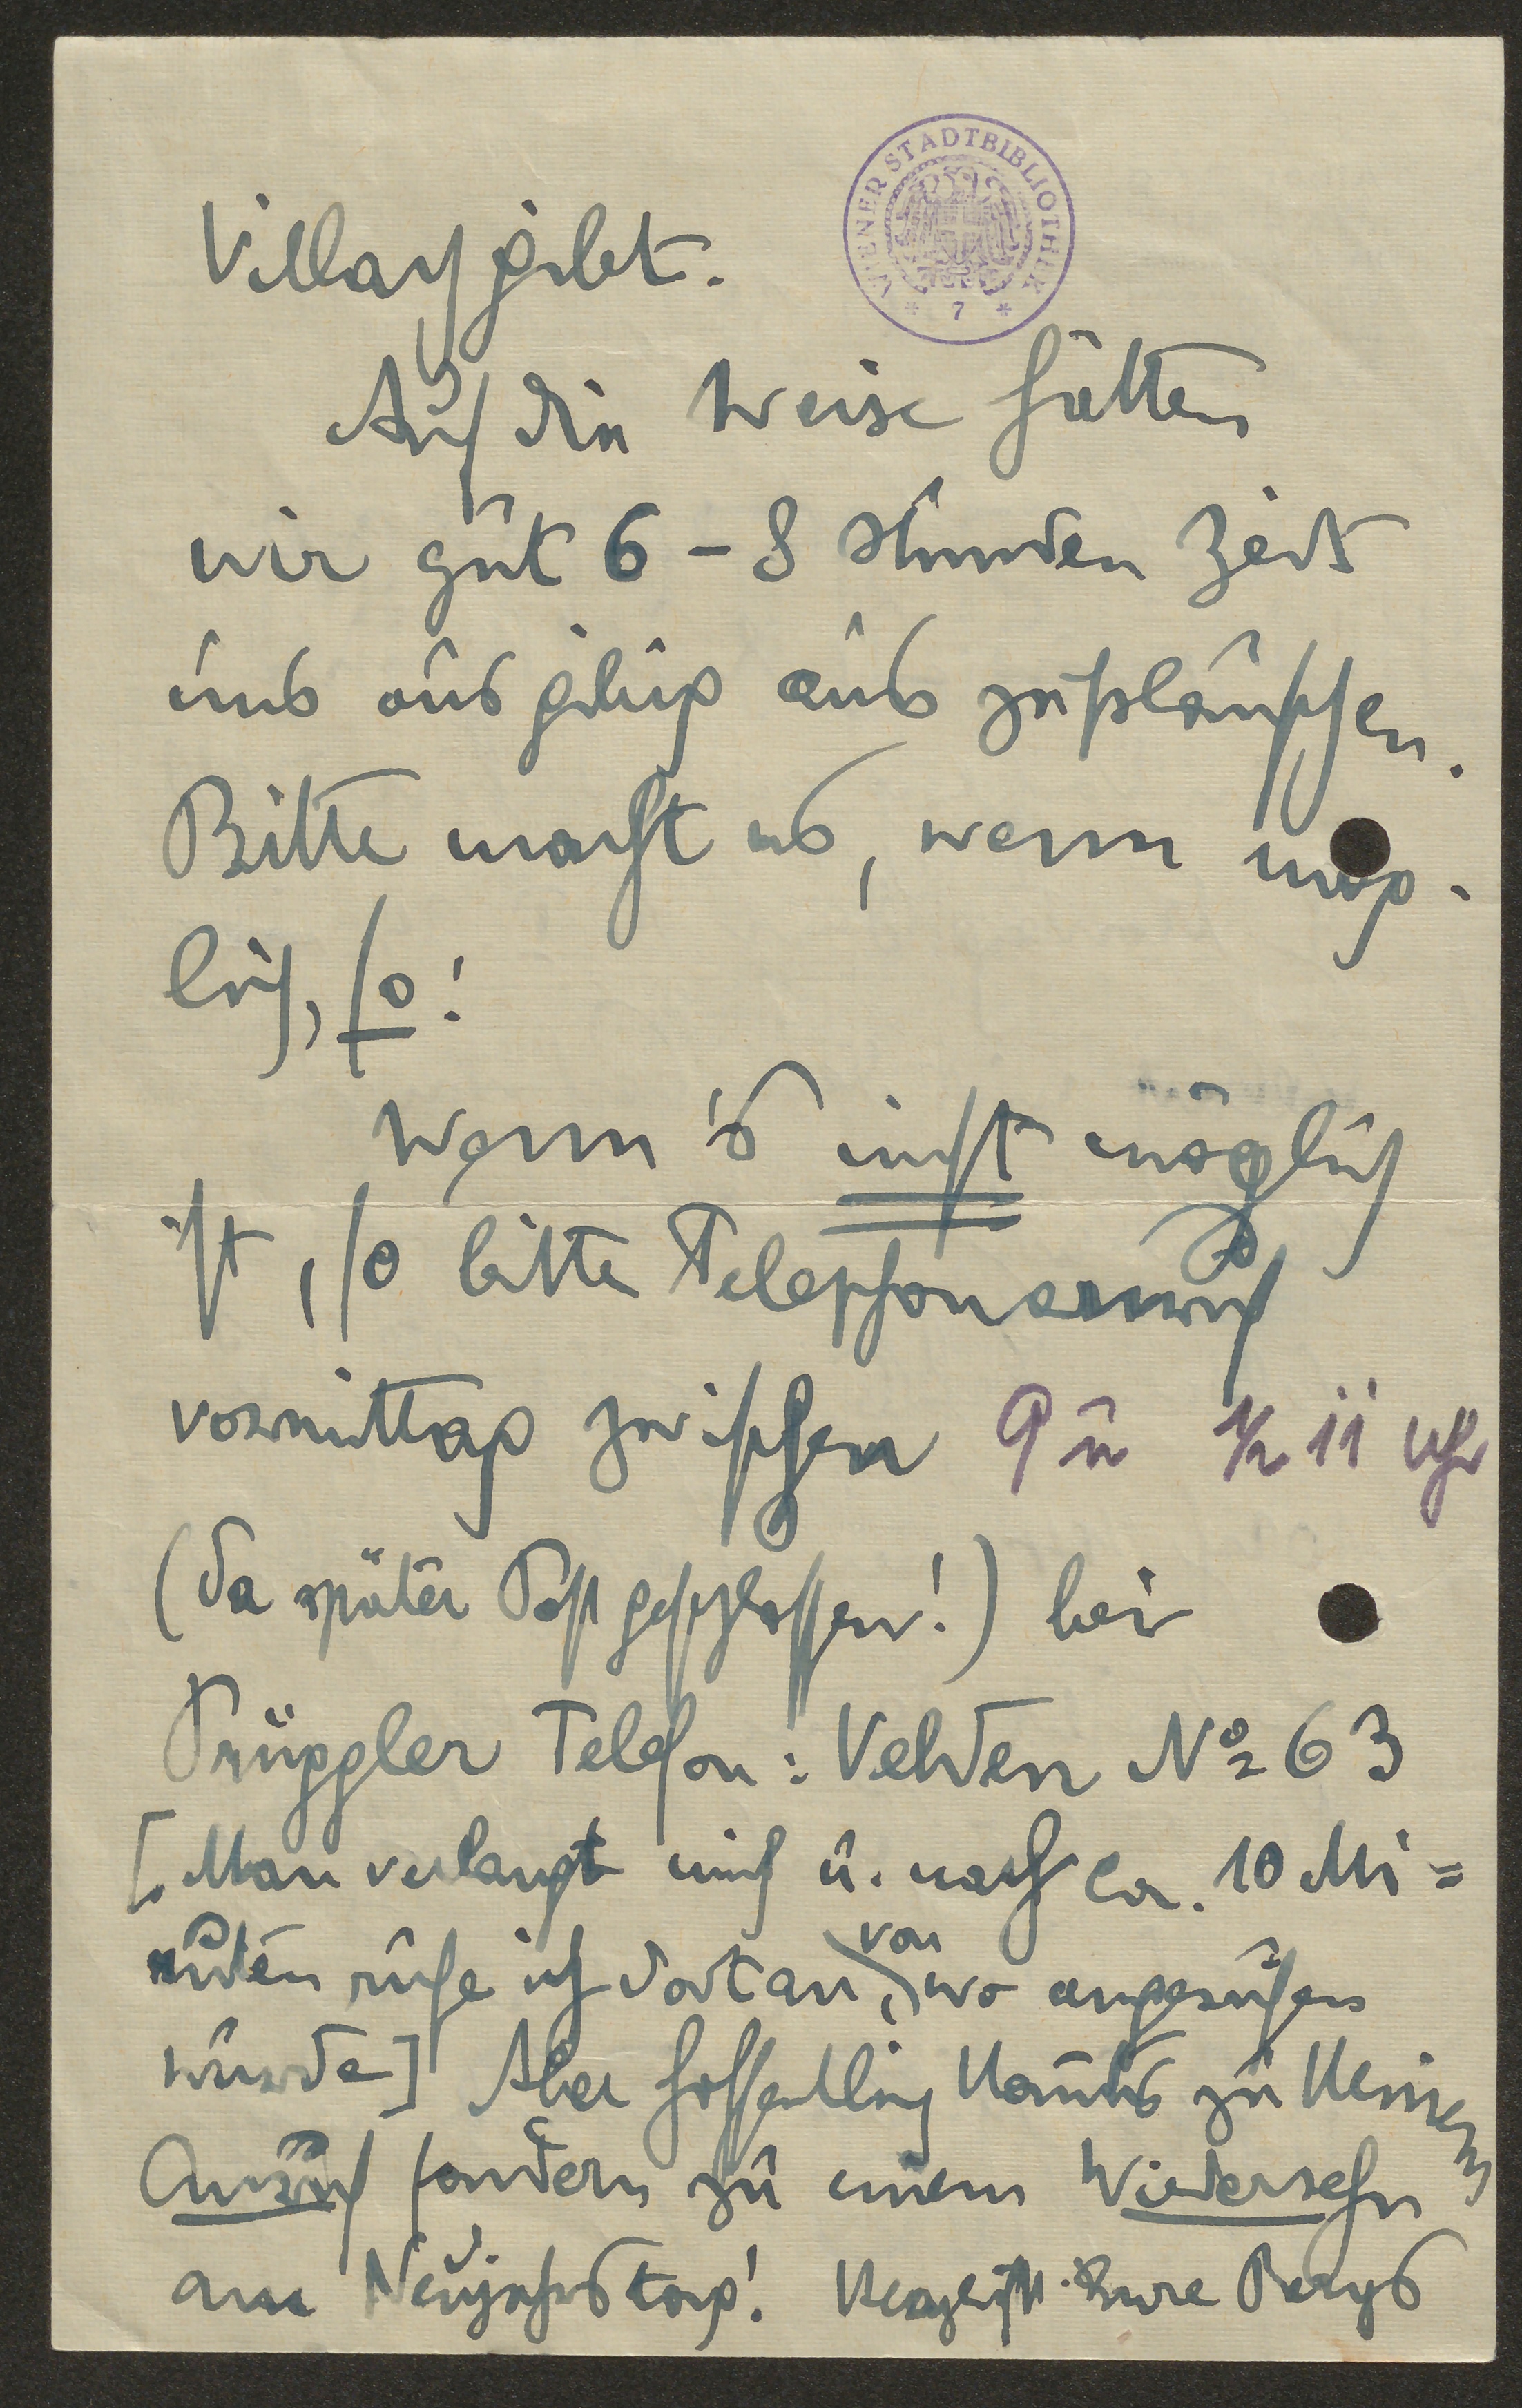 WIENER STADTBIBLIOTHEK
* 7 *
Villach gibt.
Auf die Weise hätten
wir gut 6 – 8 Stunden Zeit
uns ausgiebig auszuplauschen.
Bitte macht es, wenn mög-
lich, so!
Wenn's nicht möglich
ist, so bitte Telephonanruf
vormittag zwischen 9 u ½ 11 Uhr
(da später Post geschlossen!) bei
Prüggler Telefon: Velden No 63
[Man verlangt mich u. nach ca. 10 Mi=
nuten rufe ich dort an, von wo angerufen
wurde] Aber hoffentlich kommts zu keinem
Anruf sondern zu einem Wiedersehn
am Neujahrstag! Herzlichst Eure Bergs